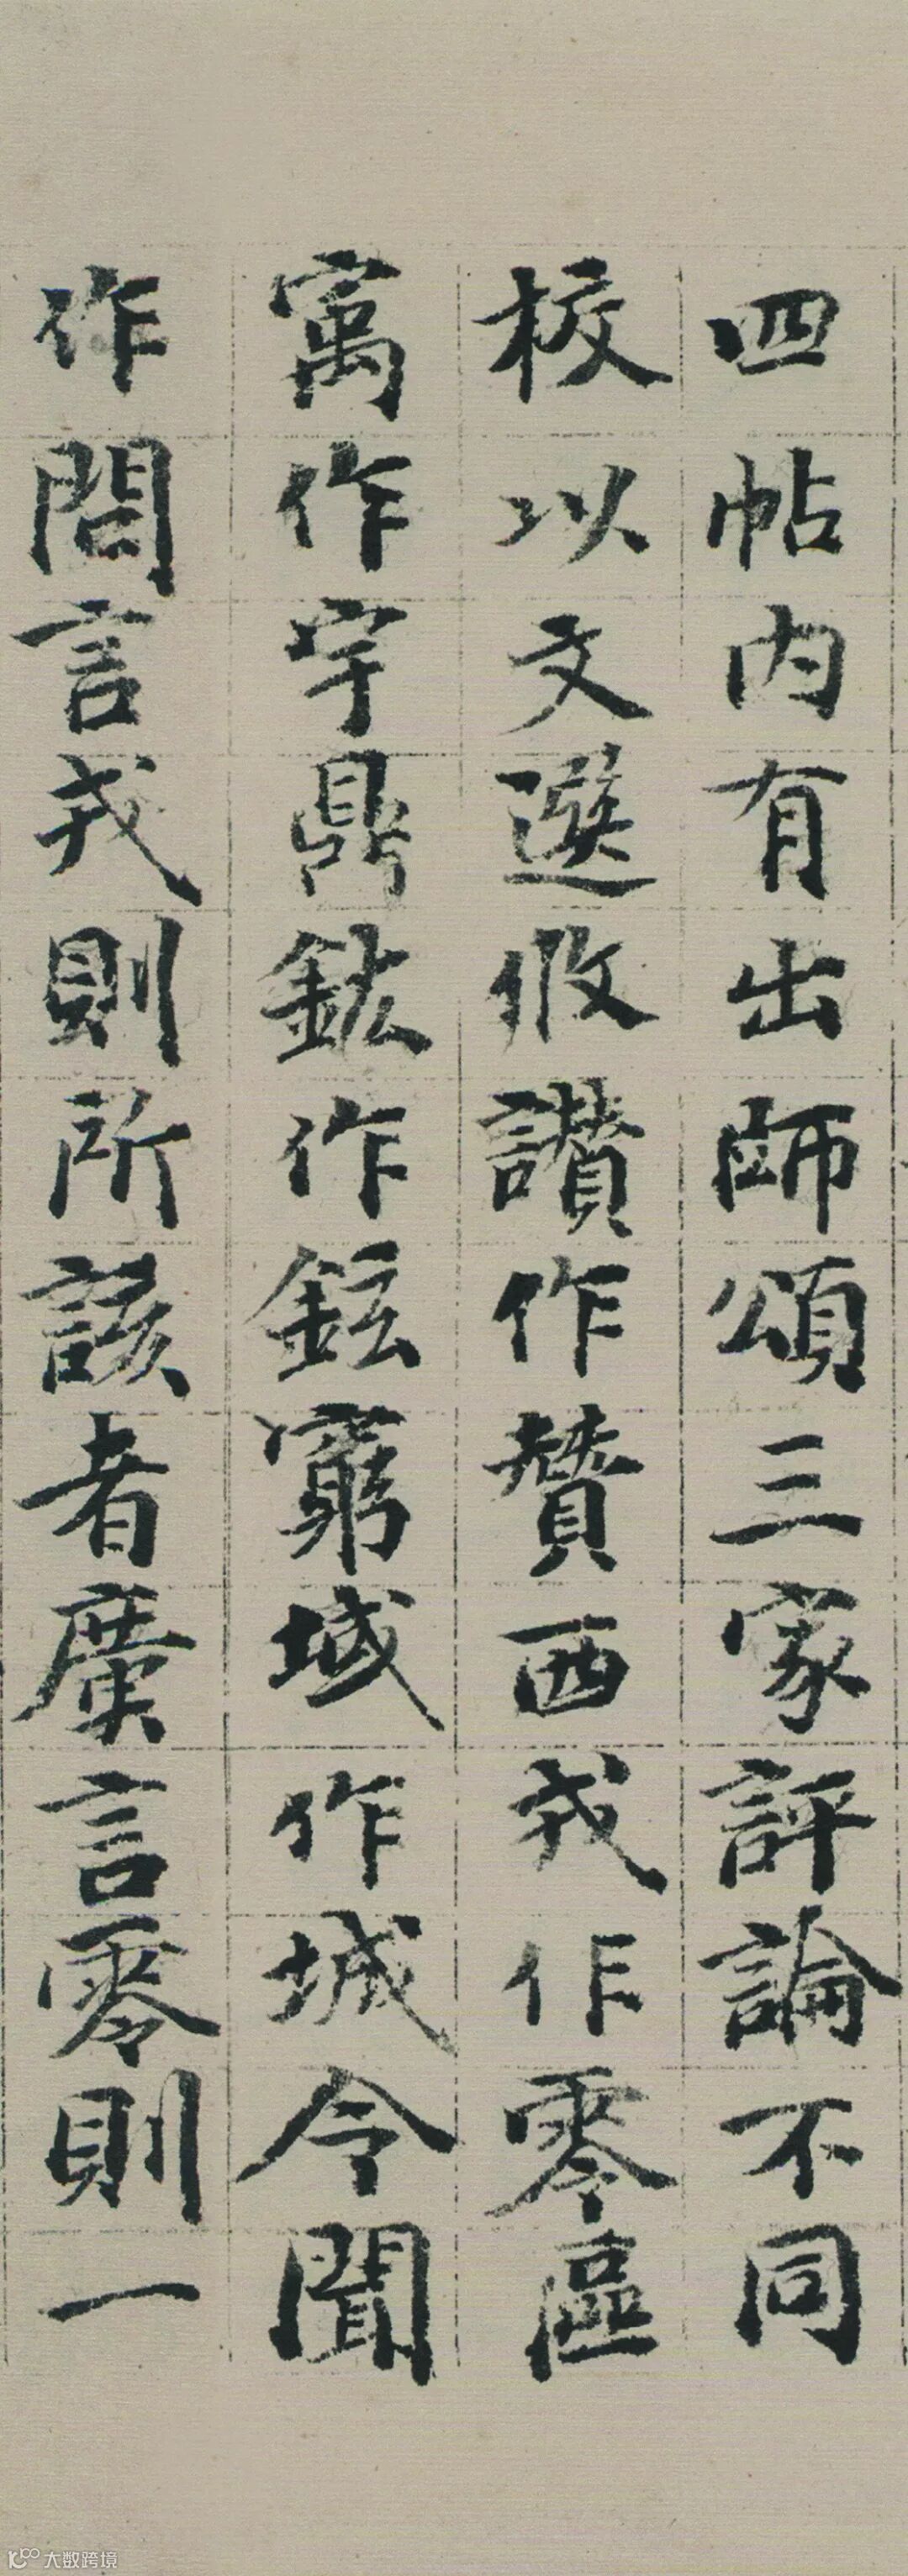 四帖内有出師頌三家評論不同
校以文選攸讚作贊西戎作零區
寓作宇鼎鈜作鉉窮域作城令聞
作問言戎則所該者廣言零則一
大数跨境